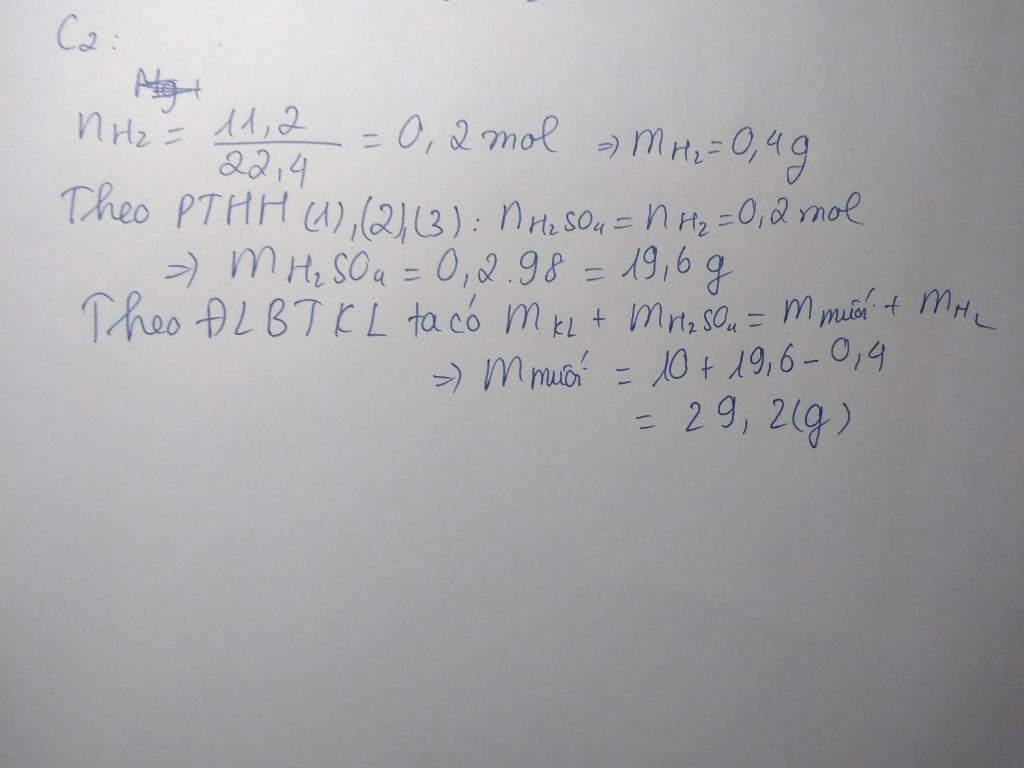 C2:
nH2 = 11,2 / 22,4 = 0,2 mol ⇒ mH2 = 0,4g
Theo PTHH (1),(2),(3): nH2SO4 = nH2 = 0,2 mol
⇒ mH2SO4 = 0,2.98 = 19,6 g
Theo ĐLBTKL ta có mKL + mH2SO4 = mmuối + mH2
⇒ mmuối = 10 + 19,6 - 0,4
= 29,2(g)